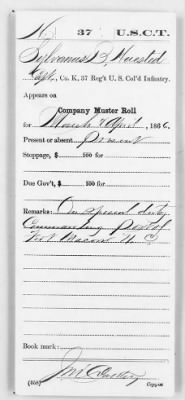 H 37 U.S.C.T.
Sylvanus B. Huested
Capt., Co. K, 37 Reg't U. S. Col'd Infantry.
Appears on
Company Muster Roll
for March & April, 1866.
Present or absent Present
Stoppage, $ 100 for
Due Gov't, $ 100 for
Remarks: On special duty
Commanding Post of
Fort Macon N. C.
Book mark:
(358) Copyist.